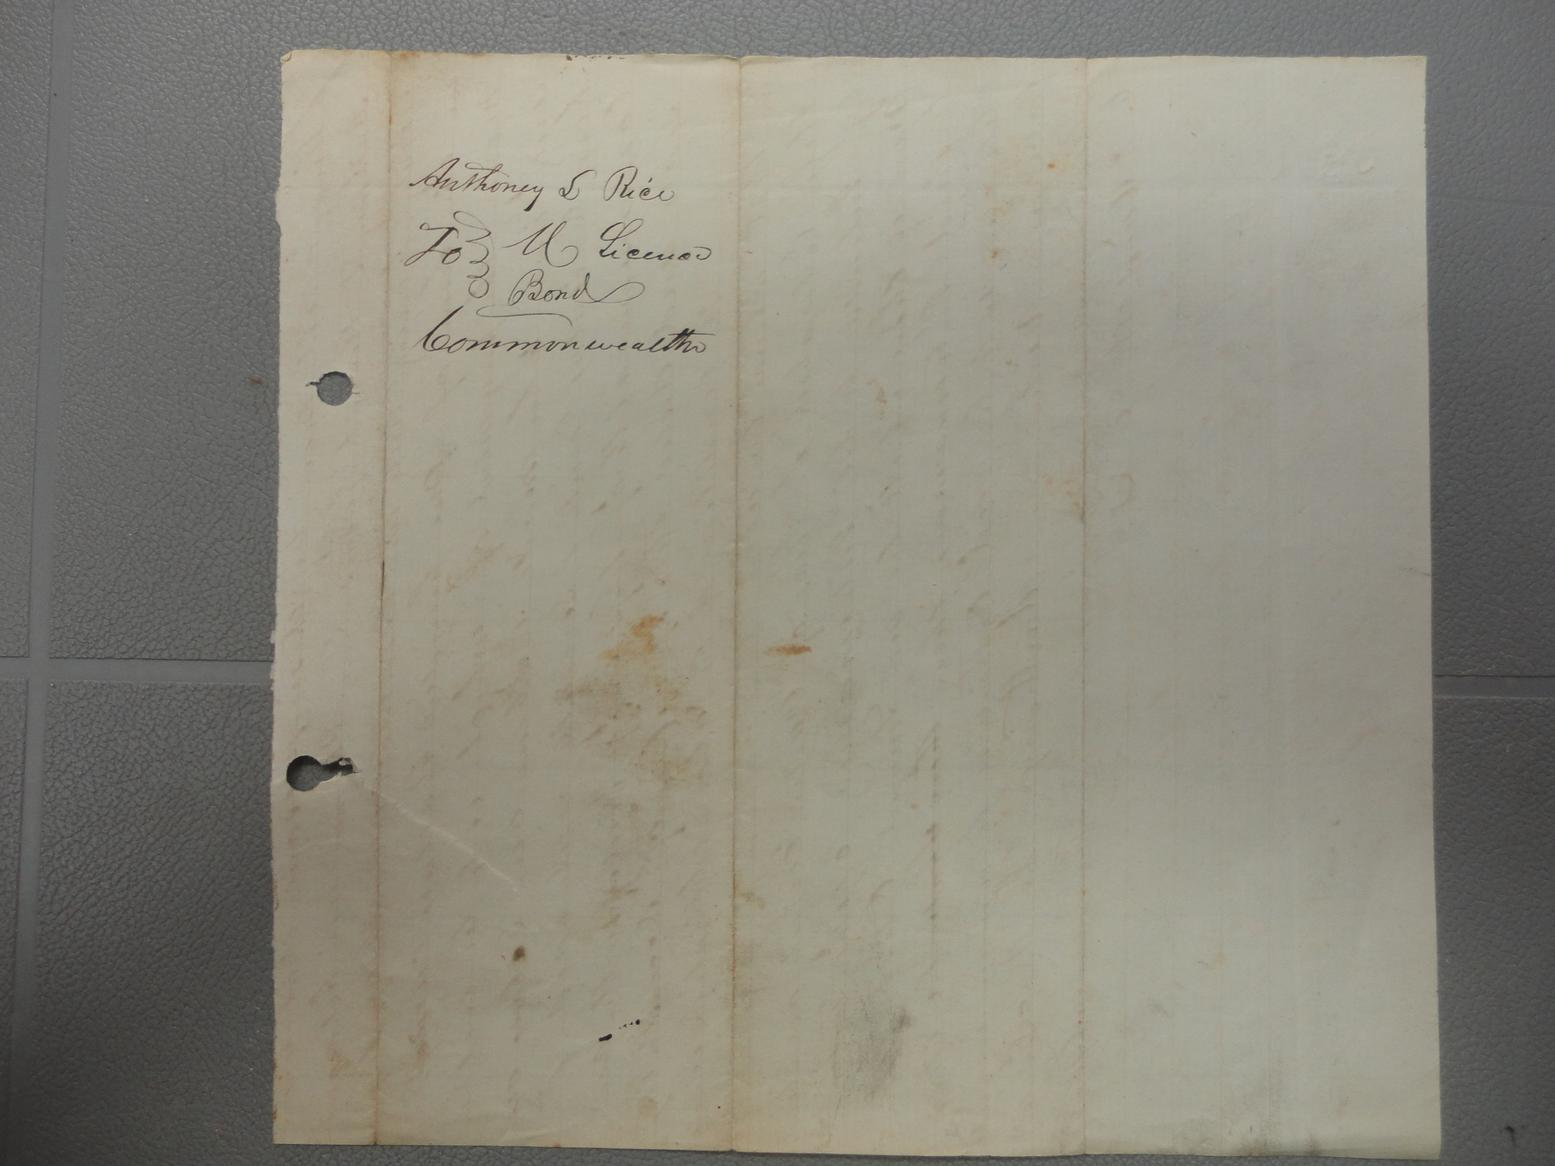 Anthoney L Rice
To } M License
Bond
Commonwealth